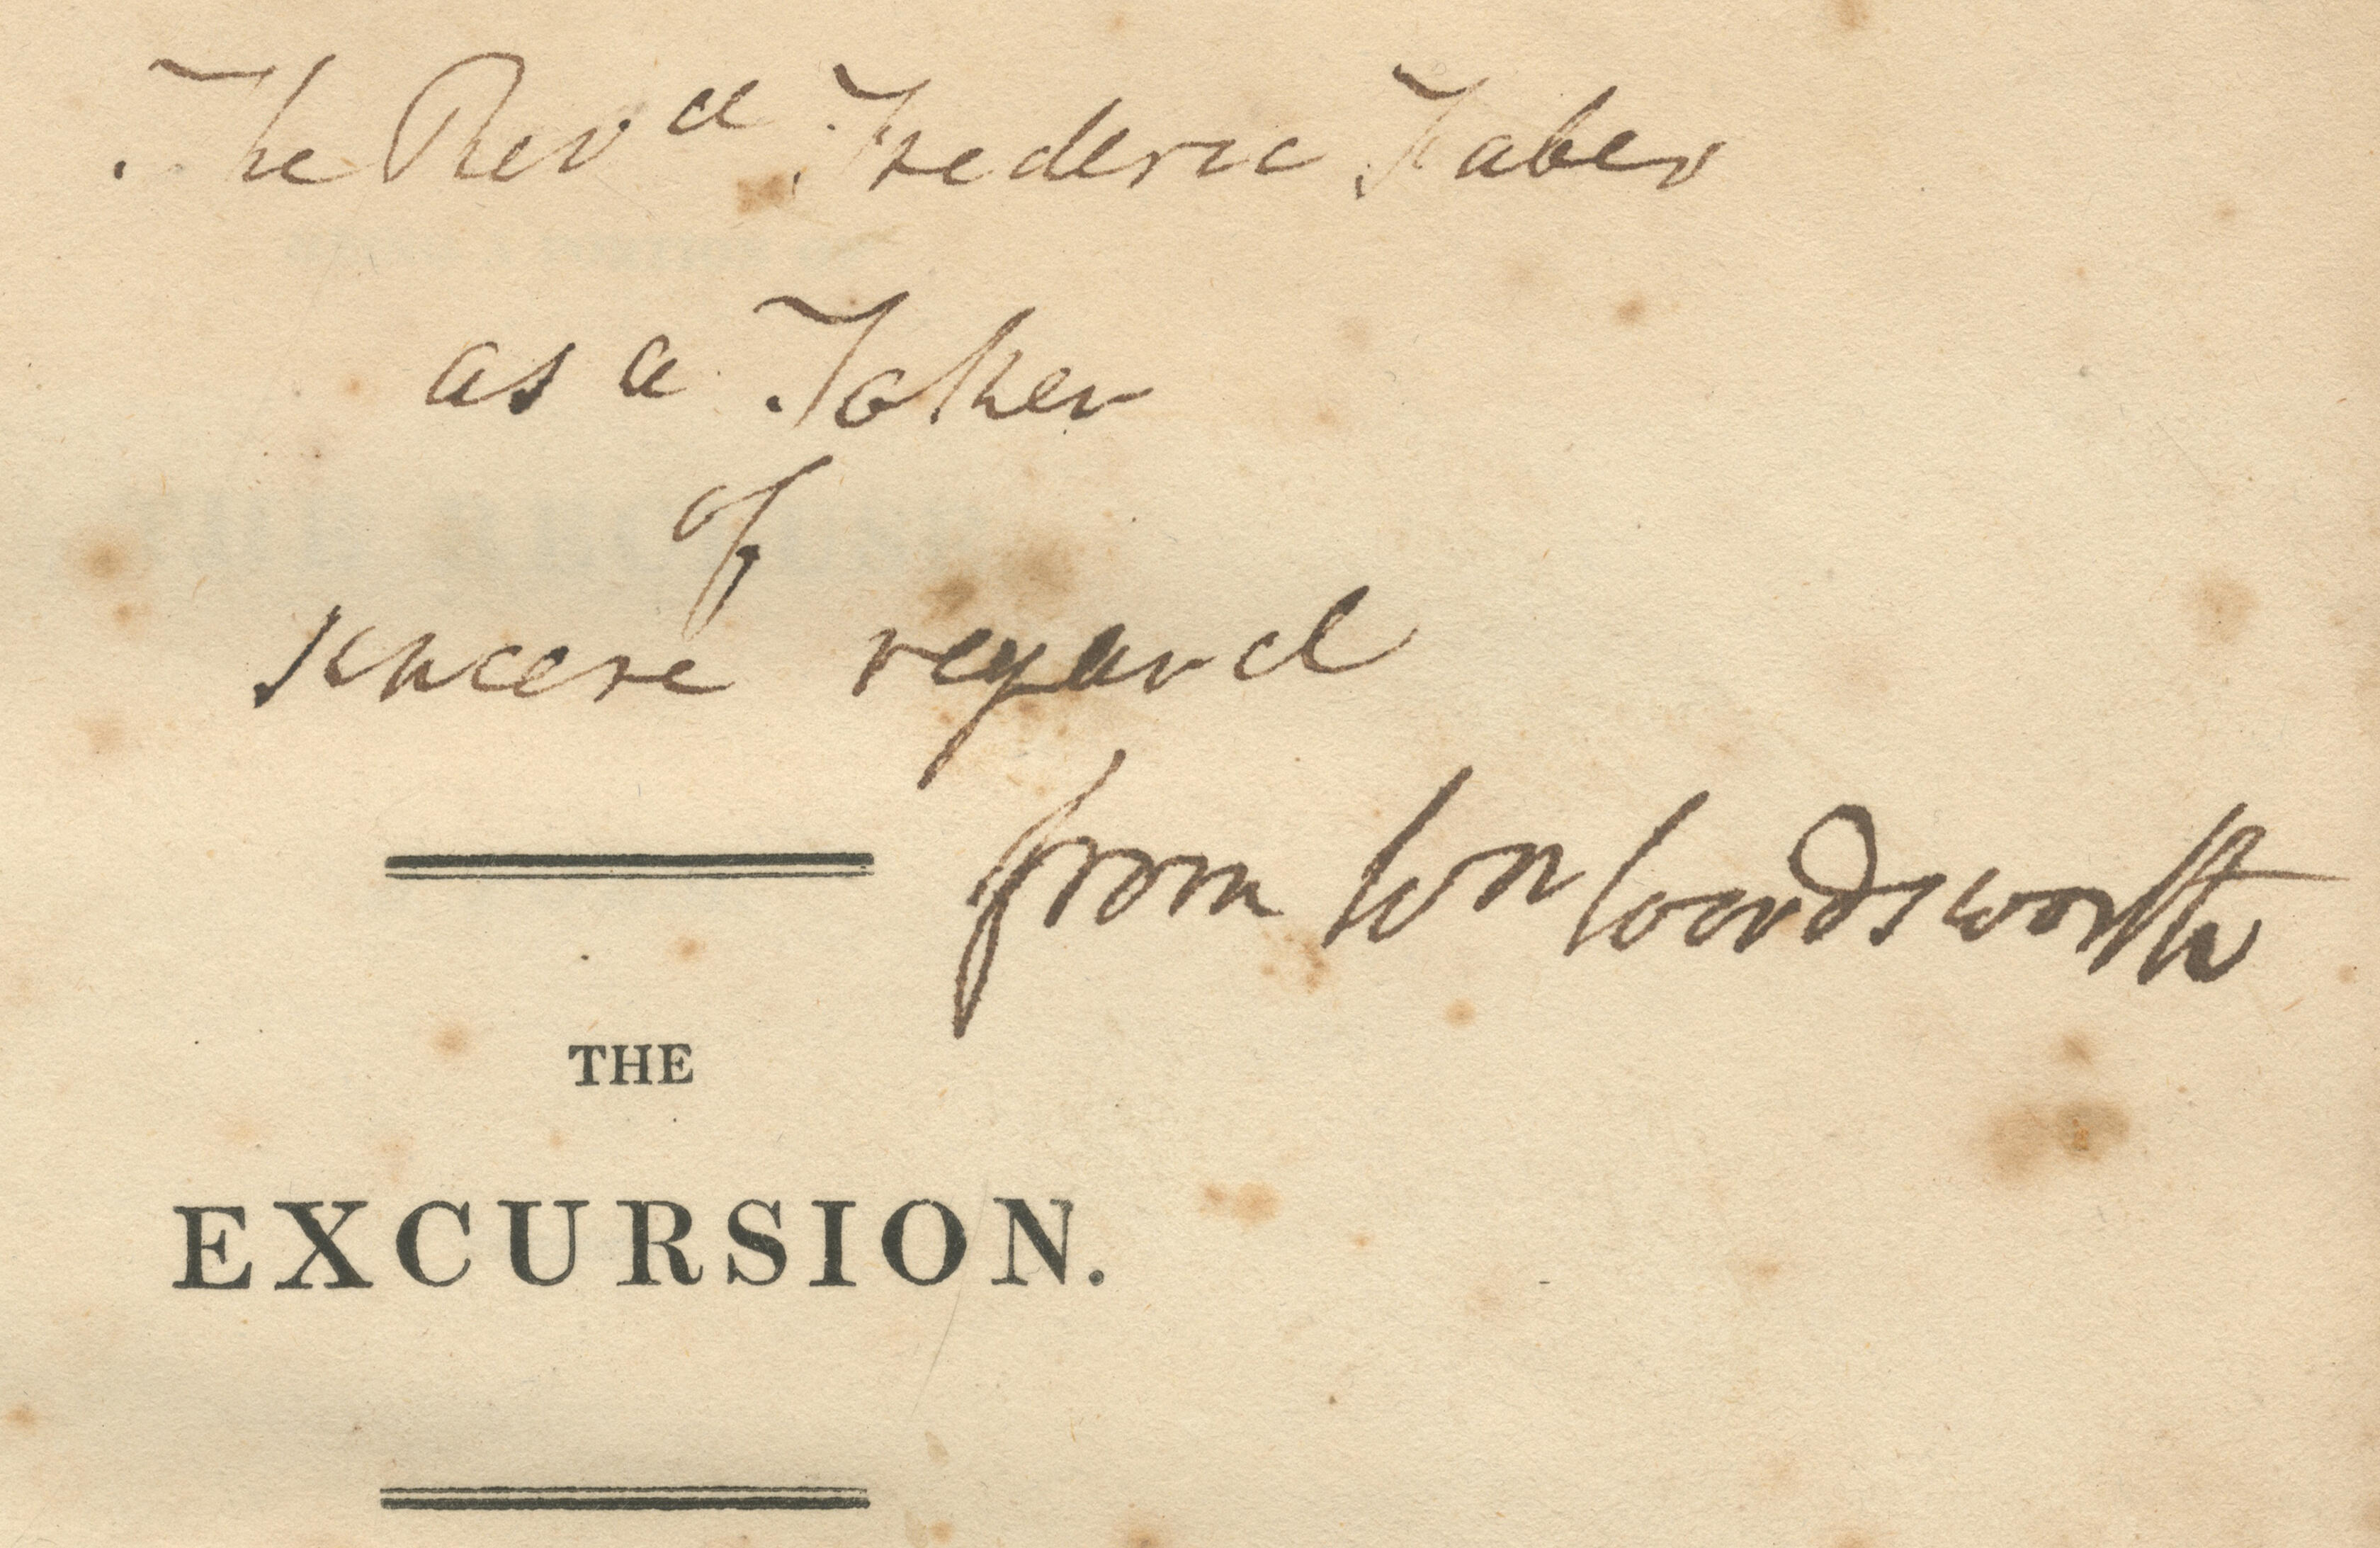 The Revd Frederic Faber
as a Token
of
sincere regard
from Wm Wordsworth
THE
EXCURSION.